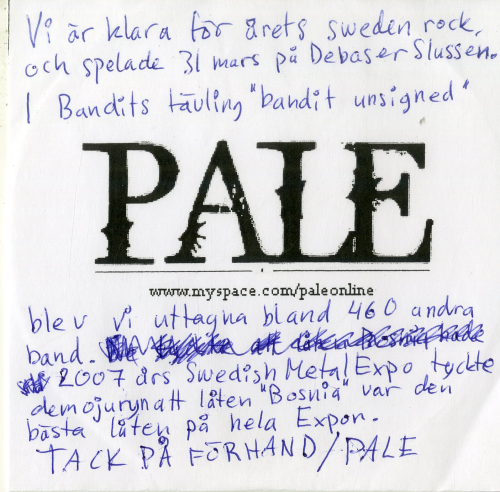 Vi är klara för årets sweden rock,
och spelade 31 mars på Debaser Slussen.
I Bandits tävling "bandit unsigned"
PALE
www.myspace.com/paleonline
blev vi uttagna bland 460 andra
band.
2007 års Swedish Metal Expo tyckte
demojurynatt låten "Bosnia" var den
bästa låten på hela Expon.
TACK PÅ FÖRHAND/PALE